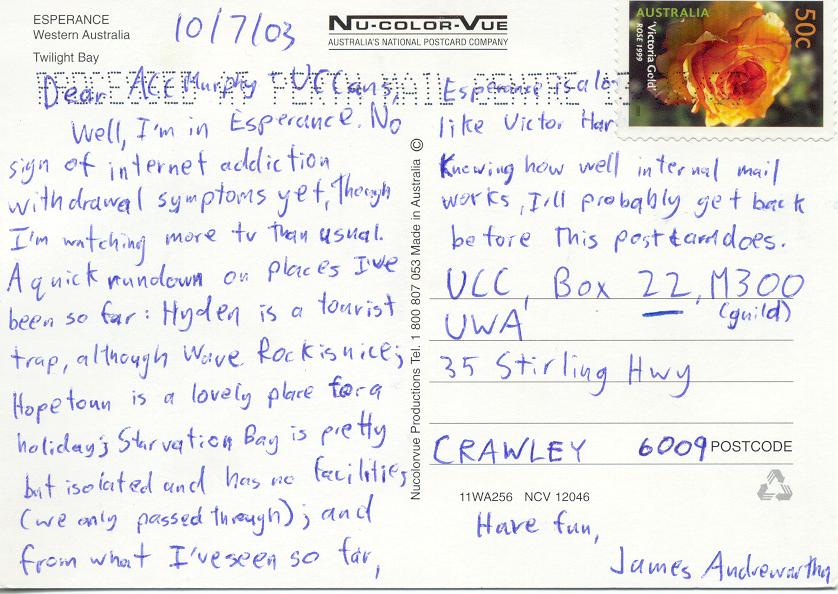 ESPERANCE
Western Australia
Twilight Bay
10/7/03
NU-COLOR-VUE
AUSTRALIA'S NATIONAL POSTCARD COMPANY
AUSTRALIA
50c
'Victoria Gold'
ROSE 1999
Dear ACC Murphy + UCCans,
Well, I'm in Esperance. No
sign of internet addiction
withdrawal symptoms yet, though
I'm watching more tv than usual.
A quick rundown on places I've
been so far: Hyden is a tourist
trap, although Wave Rock is nice;
Hopetoun is a lovely place for a
holiday; Starvation Bay is pretty
but isolated and has no facilities
(we only passed through); and
from what I've seen so far,
Nucolorvue Productions Tel. 1 800 807 053 Made in Australia ©
Esperance is a
like Victor
Knowing how well internal mail
works, I'll probably get back
before this postcard does.
UCC, Box 22, M300
(guild)
UWA
35 Stirling Hwy
CRAWLEY 6009 POSTCODE
11WA256 NCV 12046
Have fun,
James Andrewartha